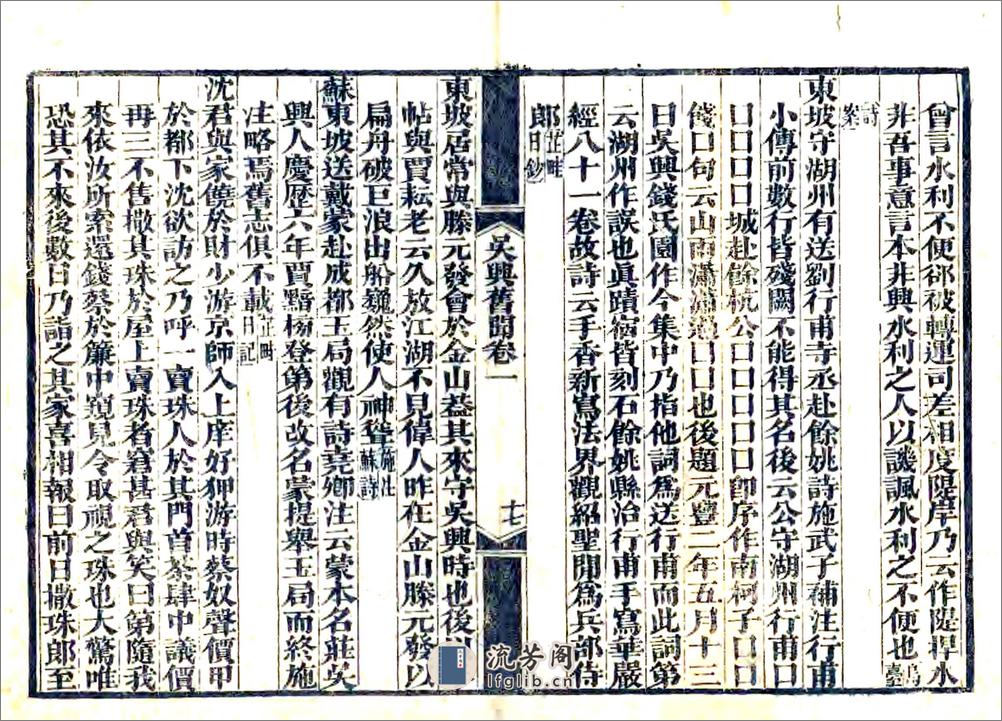 曾言水利不便卻被轉運司差相度隄岸乃云作隄捍水
非吾事意言本非興水利之人以譏諷水利之不便也烏臺
詩案
東坡守湖州有送劉行甫寺丞赴餘姚詩施武子補注行甫
小傳前數行皆殘闕不能得其名後云公守湖州行甫口
口口口口城赴餘杭公口口口口口卽序作南柯子口口
餞口句云山雨瀟瀟過口口也後題元豐二年五月十三
日吳興錢氏園作今集中乃指他詞爲送行甫而此詞第
云湖州作誤也眞蹟宿皆刻石餘姚縣治行甫手寫華嚴
經八十一卷故詩云手香新寫法界觀紹聖閒爲兵部侍
郎茳畔日鈔
吳興舊聞卷一
七
東坡居常與滕元發會於金山蓋其來守吳興時也後
帖與賈耘老云久放江湖不見偉人昨在金山滕元發以
扁舟破巨浪出船巍然使人神聳施注蘇詩
蘇東坡送戴蒙赴成都玉局觀有詩堯卿注云蒙本名莊吳
興人慶歷六年賈黯榜登第後改名蒙提舉玉局而終施
注略焉舊志俱不載茳畔日記
沈君與家饒於財少游京師入上庠好狎游時蔡奴聲價甲
於都下沈欲訪之乃呼一賣珠人於其門首茶肆中議價
再三不售撒其珠於屋上賣珠者窘甚君與笑曰第隨我
來依汝所索還錢蔡於簾中窺見令取視之珠也大驚唯
恐其不來後數日乃詣之其家喜相報曰前日撒珠郎至
流芳阁
lfglib.cn